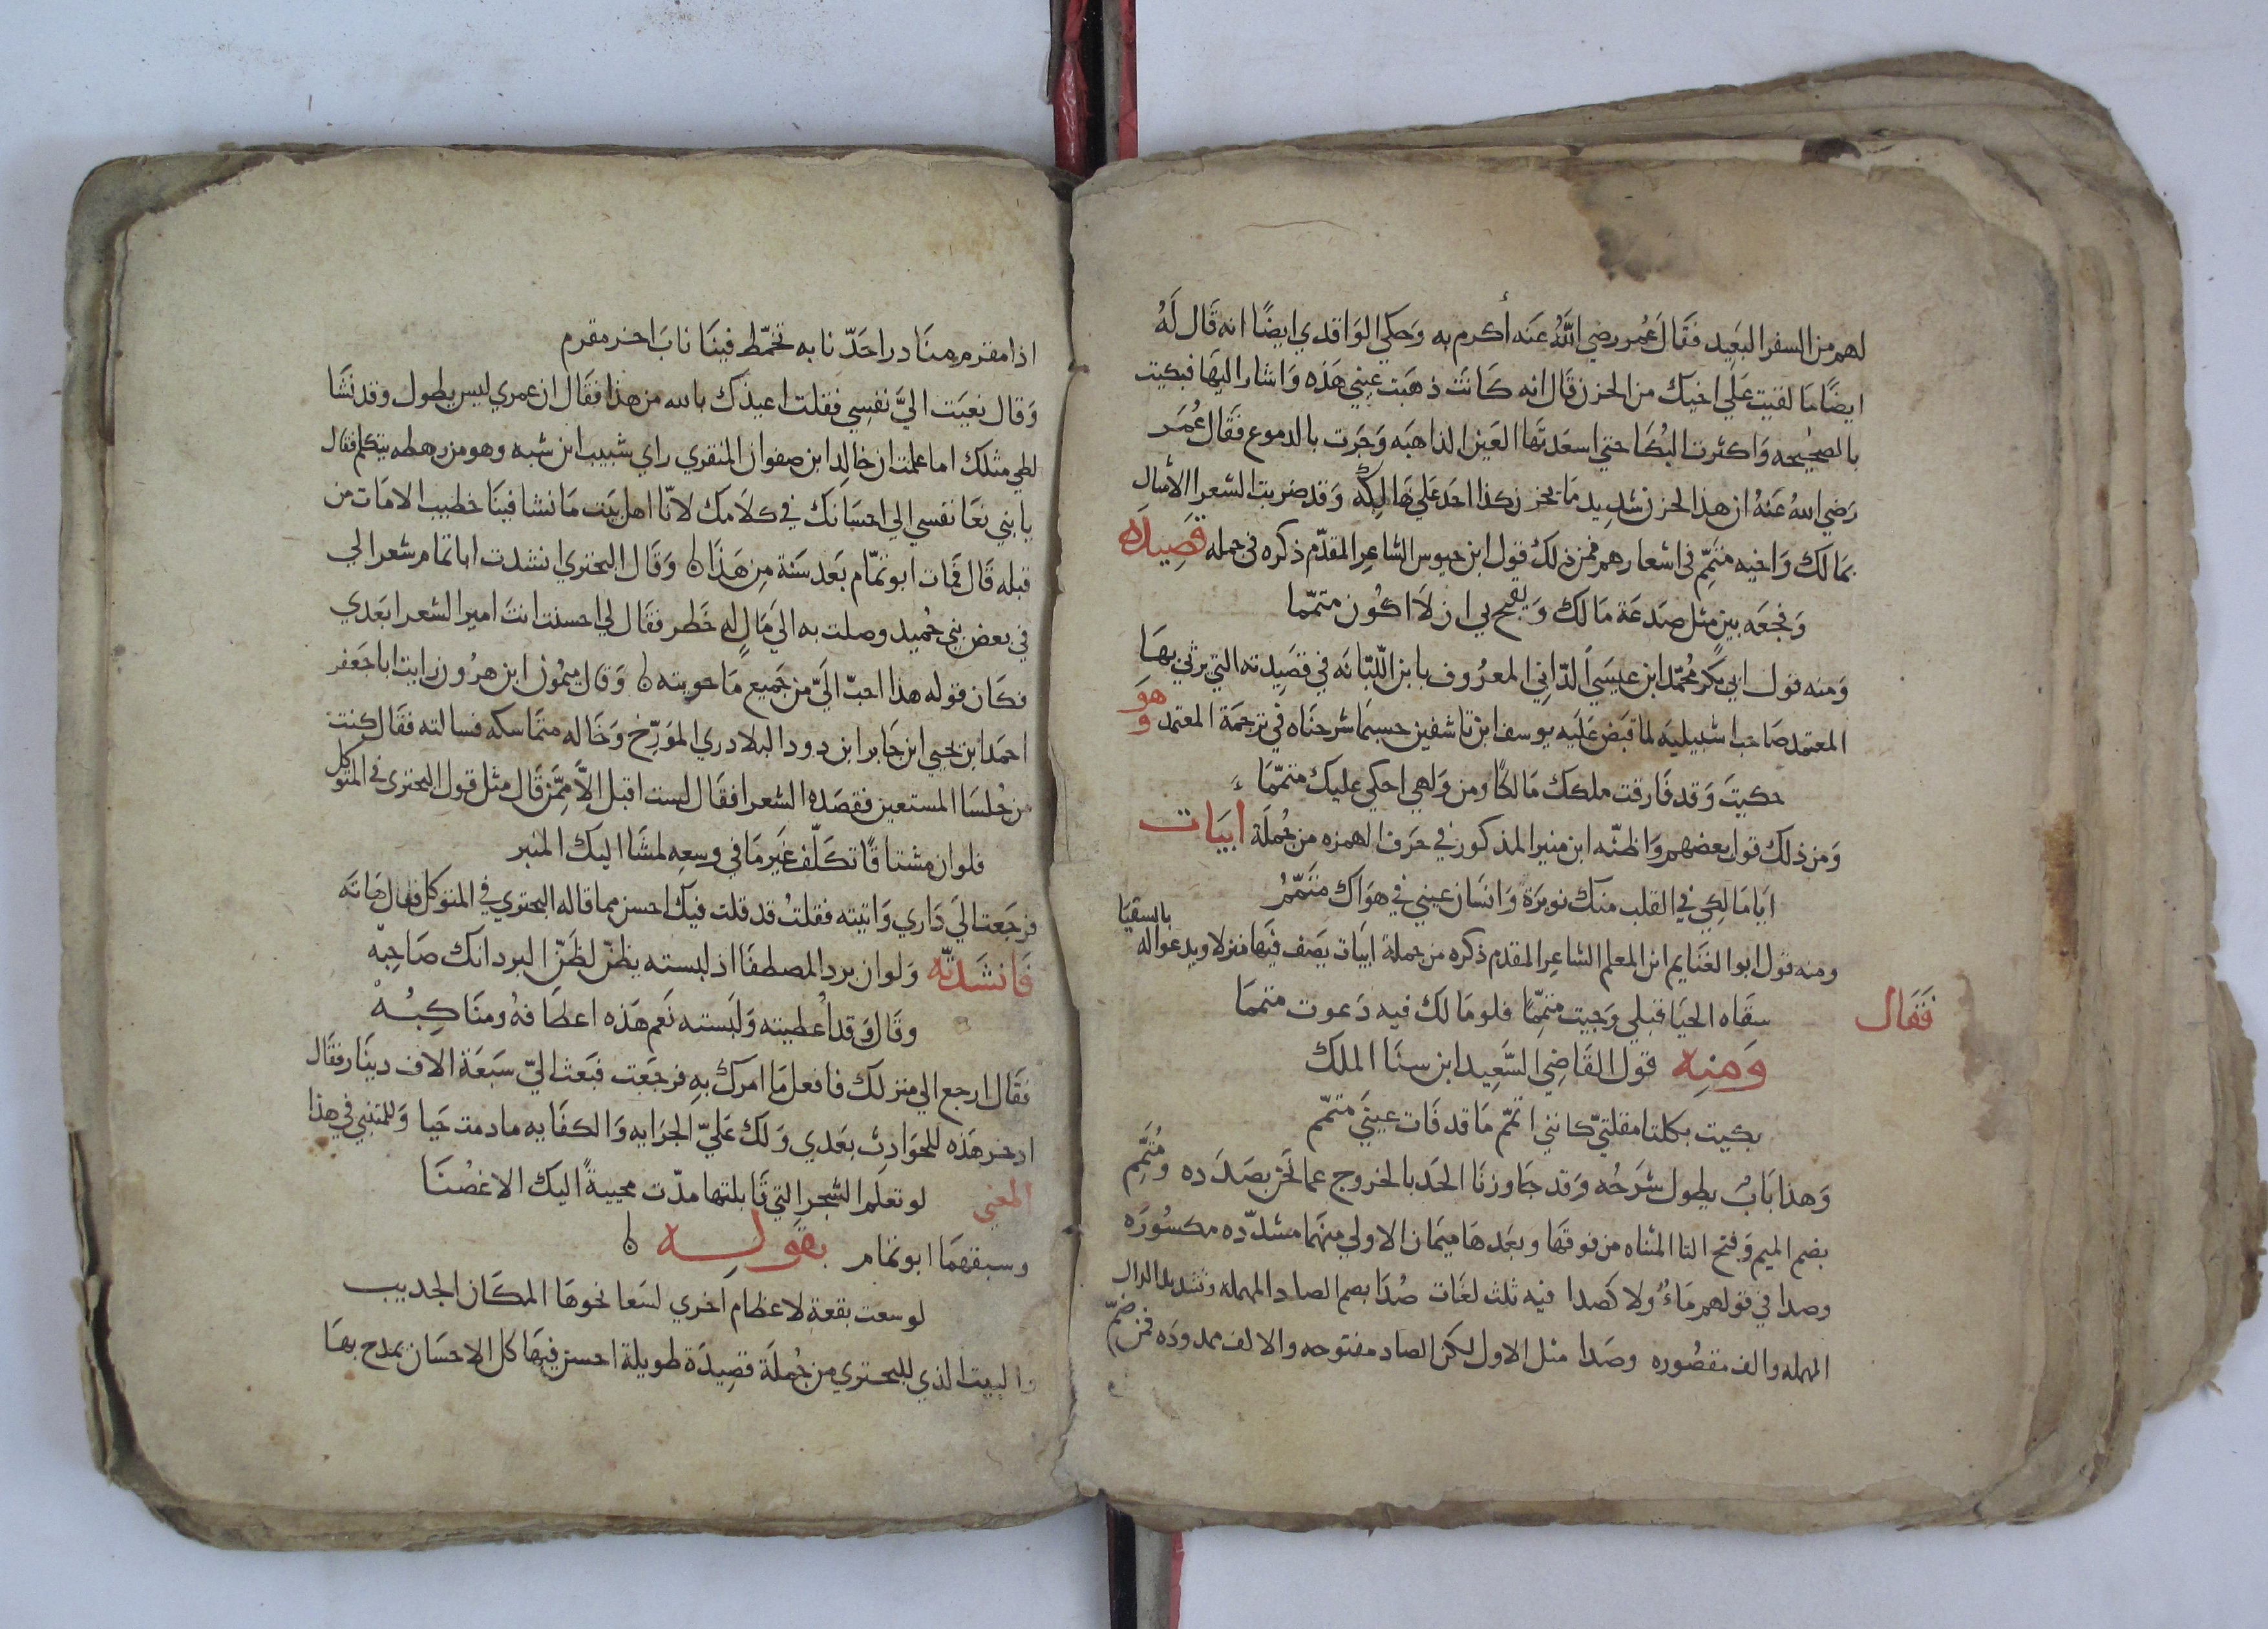 لهم من السفر البعيد فقال عمر رضي الله عنه أكرم به وحكي الواقدي ايضًا انه قال له
ايضًا ما لقيت علي اخيك من الحزن قال انه كانت ذهبت عيني هذه واشار اليها فبكيت
بالصحيحه واكثرت البكا حتي اسعدتها العين الذاهبه وجرت بالدموع فقال عمر
رضي الله عنه ان هذا لحزن شديد ما يحزن كذا احد علي هالكه وقد ضربت الشعرا الأمثال
بمالك واخيه متمّم في اشعارهم فمن ذلك قول ابن حيوس الشاعر المقدّم ذكره في جمله قصيده
وفجعه بين مثل صدعة مالك ويقبح بي ان لا اكون متمّما
ومنه قول ابي بكر محمّد ابن عيسي الدّاني المعروف بابن اللّبّانه في قصيدته التي يرثي بها
المعتمد صاحب اشبيليه لما قبض عليه يوسف ابن تاشفين حسبما شرحناه في ترجمة المعتمد وهو
حكيت وقد فارقت ملكك مالكًا ومن ولهي احكي عليك متمّما
ومن ذلك قول بعضهم واظنّه ابن منير المذكور في حرف الهمزه من جملة ابيات
ايا مالكي في القلب منك نويرة وانسان عيني في هواك متمّمُ
ومنه قول ابو الغنايم ابن المعلم الشاعر المقدم ذكره من جملة ابيات يصف فيها منزلا ويدعوا له بالسقيا
فقال سقاه الحيا قبلي وجيت متمّمًا فلو مالك فيه دعوت متمما
ومنه قول القاضي السّعيد ابن سنا الملك
بكيت بكلتا مقلتيّ كانني اتمّم ما قد فات عيني متمّم
وهذا باب يطول شرحه وقد جاوزنا الحد بالخروج عما نحن بصدده ومُتَمِّم
بضم الميم وفتح التا المثناه من فوقها وبعدها ميمان الاولي منهما مشدّده مكسوره
وصدا في قولهم ماءٌ ولا كصدا فيه ثلث لغات صُدّا بضم الصاد المهمله وتشديد الدال
المهمله والف مقصوره وصدا مثل الاول لكن الصاد مفتوحه والالف ممدوده فمن ضمّ
اذا مقرم منا درا حدّ نابه تخمّط فينا ناب اخر مقرم
وقال نعيت اليّ نفسي فقلت اعيذك بالله من هذا فقال ان عمري ليس يطول وقد نشا
لطي مثلك اما علمت ان خالد ابن صفوان المنقري راي شبيب ابن شبه وهو من رهطه يتكلم فقال
يا بني نعا نفسي الي احسانك في كلامك لانّا اهل بيت ما نشا فينا خطيب الا مات من
قبله قال فمات ابو تمّام بعد سنة من هذا وقال البحتري انشدت ابا تمام شعرا لي
في بعض بني حُميد وصلت به الي مالٍ له خطر فقال لي احسنت انت امير الشعرا بعدي
فكان قوله هذا احبّ اليّ من جميع ما حويته وقال ميمون ابن هرون رايت ابا جعفر
احمد ابن يحيي ابن جابر ابن دود البلادري المؤرّخ وحاله متماسكه فسالته فقال كنت
من جُلسا المستعين فقصده الشعرا فقال لست اقبل الاّ ممّن قال مثل قول البحتري في المتوكل
فلو ان مشتاقًا تكلّف غير ما في وسعه لمشا اليك المنبر
فرجعت الي داري واتيته فقلت قد قلت فيك احسن مما قاله البحتوي في المتوكل فقال هاته
فانشدته ولو ان برد المصطفا اذ لبسته يظنّ لظنّ البرد انك صاحبه
وقال وقد أُعطيته ولبسته نعم هذه اعطافهُ ومناكبُهْ
فقال ارجع الي منزلك فافعل ما امرك به فرجعت فبعث اليّ سبعة الاف دينار فقال
ادخر هذه للحوادث بعدي ولك عليّ الجرايه والكفايه ما دمت حيا وللمتنبي في هذا
المعني لو تعلم الشجر التي قابلتها مدّت محييةً اليك الاغصنا
وسبقهما ابو تمام بقوله
لو سعت بقعة لاعظام اخري لسعا نحوها المكان الجديب
والبيت الذي للبحتري من جُملة قصيدة طويلة احسن فيها كل الاحسان يمدح بها